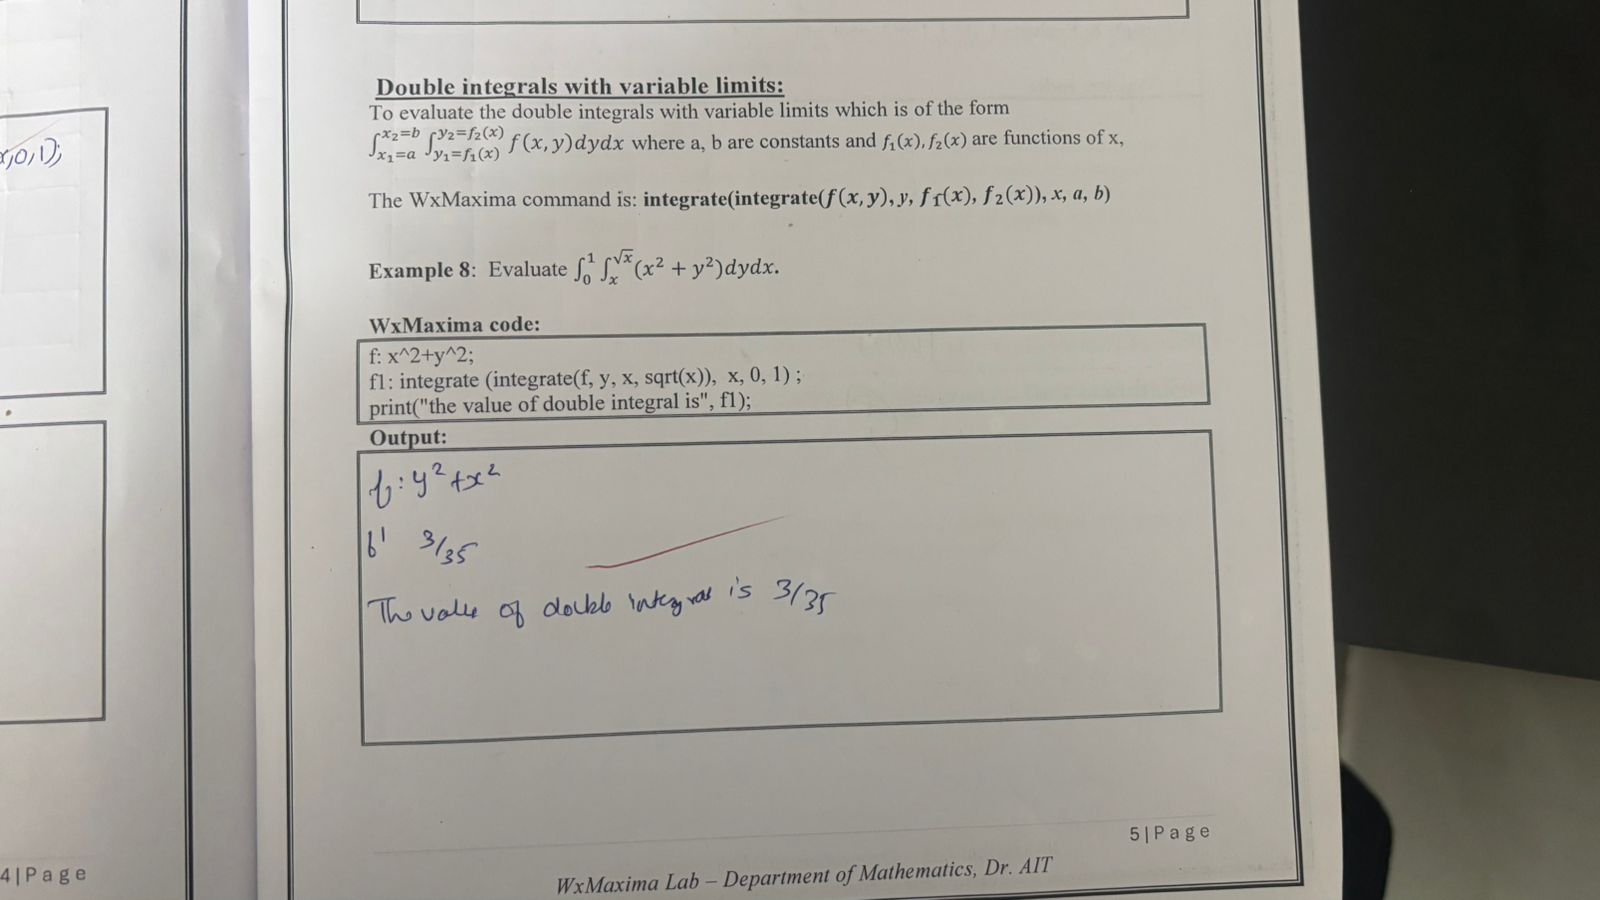 x,0,1);
4|Page
Double integrals with variable limits:
To evaluate the double integrals with variable limits which is of the form
∫_{x₁=a}^{x₂=b} ∫_{y₁=f₁(x)}^{y₂=f₂(x)} f(x, y)dydx where a, b are constants and f₁(x), f₂(x) are functions of x,
The WxMaxima command is: integrate(integrate(f(x, y), y, f₁(x), f₂(x)), x, a, b)
Example 8: Evaluate ∫₀¹ ∫ₓ^{√x}(x² + y²)dydx.
WxMaxima code:
f: x^2+y^2;
f1: integrate (integrate(f, y, x, sqrt(x)), x, 0, 1) ;
print("the value of double integral is", f1);
Output:
f: y² + x²
f1 3/35
The value of double integral is 3/35
5|Page
WxMaxima Lab – Department of Mathematics, Dr. AIT